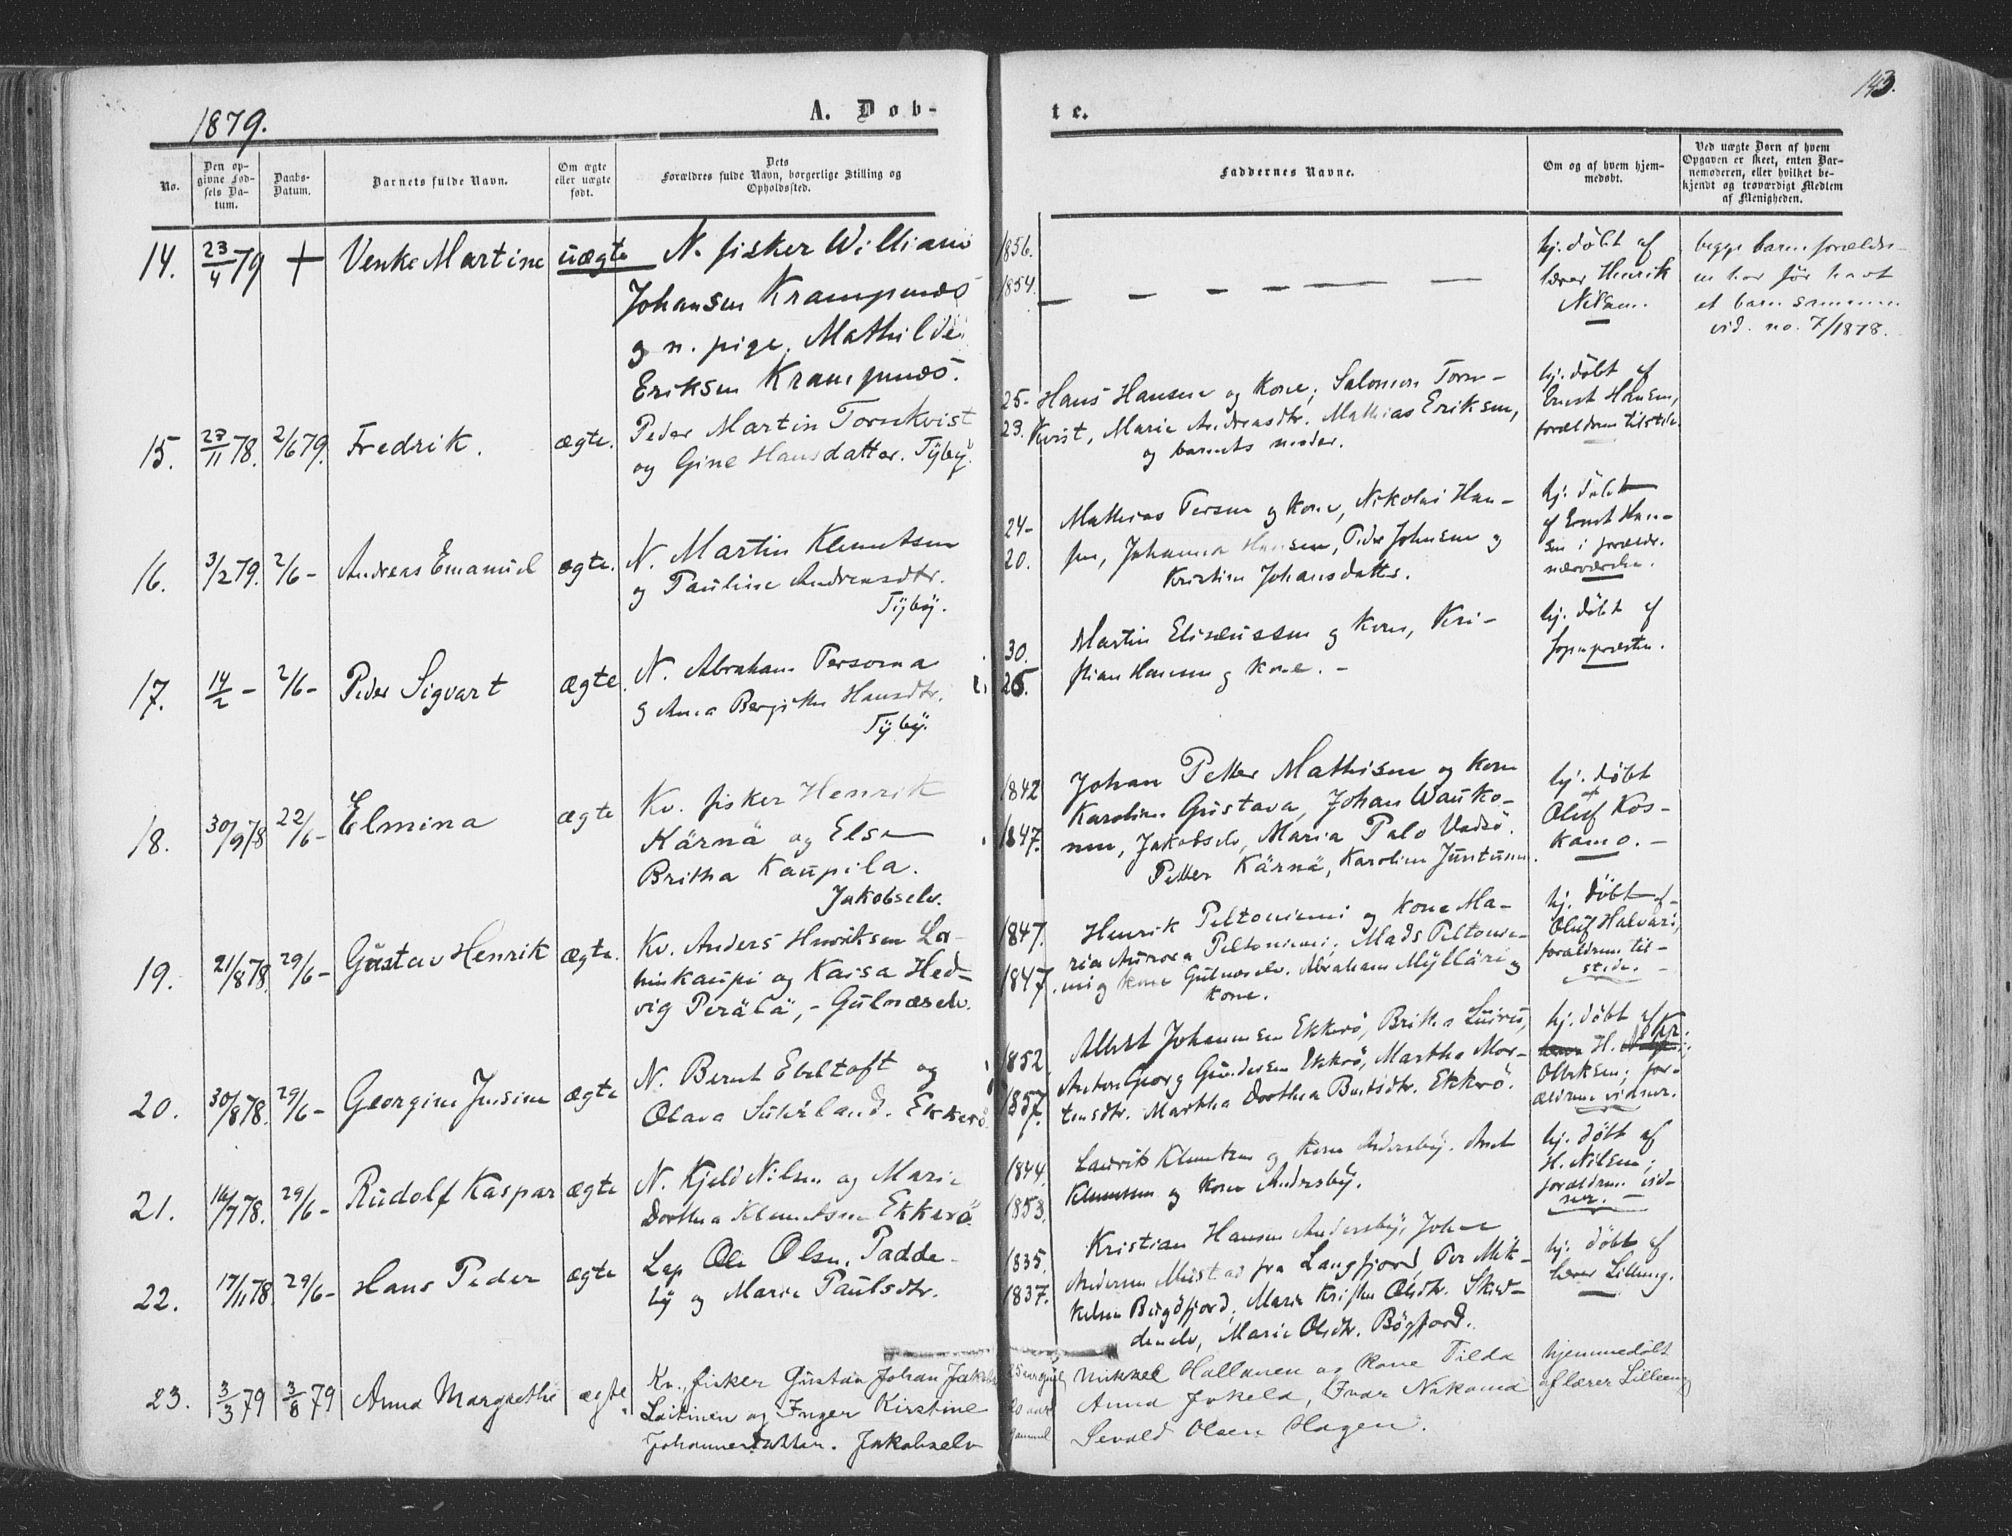 143.
1879.
A. Døb-
te.
No.
Den op-
givne Fød-
sels Da-
tum.
Daabs-
Datum.
Barnets fulde Navn.
Om ægte
eller uægte
født.
Dets
Forældres fulde Navn, borgerlige Stilling og
Opholdssted.
Faddernes Navne.
Om og af hvem hjem-
medøbt.
Ved uægte Børn af hvem
Opgaven er skeet, enten Bar-
nemoderen, eller hvilket be-
kjendt og troværdigt Medlem
af Menigheden.
14. 23/4 79 + Venke Martine uægte
N. fisker William
Johansen Krampenæs
og n. pige, Mathilde
Eriksen Krampenæs.
1856.
1854.
— — — — — — —
hj. døbt af
lærer Henrik
begge barnforældre-
ne har før havt
et barn sammen
vid. no. 7/1878.
15. 27/11 78. 2/6 79. Fredrik. ægte.
Peder Martin Tornkvist
og Gine Hansdatter. Tÿbÿ.
25-
23.
Hans Hansen og Kone, Salomon Torn-
kvist, Marie Andreasdtr. Mathias Eriksen,
og barnets moder.
hj. døbt af
Ernst Hansen,
forældrene tilstede.
16. 3/2 79. 2/6 - Andreas Emanuel ægte.
N. Martin Klemetsen
og Pauline Andreasdtr.
Tÿbÿ.
24-
20.
Mathias Persen og kone, Nikolai Han-
sen, Johanna Hansen, Peder Johnsen og
Kristine Johansdatter.
hj. døbt
af Ernst Han-
sen i forældr.
nærværelse.
17. 14/2 - 2/6 - Peder Sigvart ægte.
N. Abraham Persona
og Anna Bergitte Hansdtr.
Tÿbÿ.
30.
25.
Martin Elisæussen og kone, Kri-
stian Hansen og kone. -
hj. døbt af
sognepræsten.
18. 30/9 78 22/6 - Elmina ægte
Kv. fisker Henrik
Kärnä og Else
Britha Kaupila.
Jakobselv.
1842
1847.
Johan Petter Mathisen og kone
Karoline Gustava, Johan Wauko-
nen, Jakobselv, Maria Palo Vadsö.
Petter Kärnä, Karoline Juntunen.
hj. døbt
af
Oluf Kos-
kamo. -
19. 21/8 78. 29/6 - Gustav Henrik ægte.
Kv. Anders Henriksen La-
hinkaupi og Kaisa Hed-
vig Perälä, - Gulnæselv.
1847.
1847.
Henrik Peltoniemi og kone Ma-
ria Aurora Peltoniemi, Mads Peltonie-
mi og kone Gulnæselv. Abraham Mÿlläri og
kone.
hj. døbt af
Oluf Halvari,
forældrene til-
stede. -
20. 30/8 78. 29/6 - Georgine Jensine ægte
N. Bernt Ebeltoft og
Olava Suhrland. Ekkerö.
1852
1857.
Albert Johannesen Ekkerö, Britha
Anton Georg Gundersen Ekkerö, Martha Mor-
tensdtr. Martha Dorthea Berntsdtr. Ekkerö.
hj. døbt af
H.
Olerksen; for-
ældrene vidner.
21. 16/7 78. 29/6 - Rudolf Kaspar ægte
N. Kjeld Nilsen og Marie
Dorthea Klemetsen Ekkerö.
1844.
1853.
Laurits Klemetsen og kone Andersby. Anet
Klemetsen og kone Andersby.
hj. døbt af
H. Nilsen;
forældrene vid-
ner. -
22. 17/11 78. 29/6 - Hans Peder ægte
Lap Ole Olsen. Padde-
by og Marie Paulsdtr.
1835.
1837.
Kristian Hansen Andersbÿ, Johan
Andersen Mustad fra Langfjord, Per Mik-
kelsen Bugøfjord, Marie Kristine Olsdtr. Skid-
denelv, Marie Olsdtr. Bögfjord.
hj. døbt af
lærer Lilleng.
23. 3/3 79 3/8 79 Anna Margrethe ægte.
Kv. fisker Gustav Johan Jakobs
Laitinen og Inger Kirstine
Johannesdatter. Jakobselv
20 aar
gammel
Mikkel Hallanen og Kone Tilda
Anna Jokela, Ivar Nakama
Sevald Olsen Hagen.
hjemmedøbt
af lærer Lilleeng